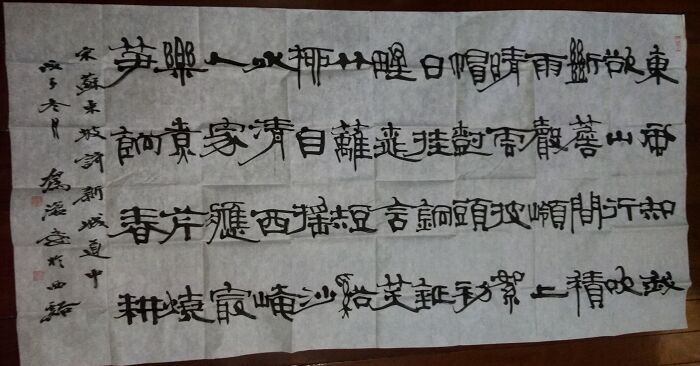 東風知我
欲山行吹
斷簷間積
雨聲嶺上
晴雲披絮
帽樹頭初
日挂銅鉦
野桃含笑
竹籬短溪
柳自搖沙
水清西崦
人家應最
樂煮芹燒
筍餉春耕
宋蘇東坡詩新城道中
子冬月 於西谿